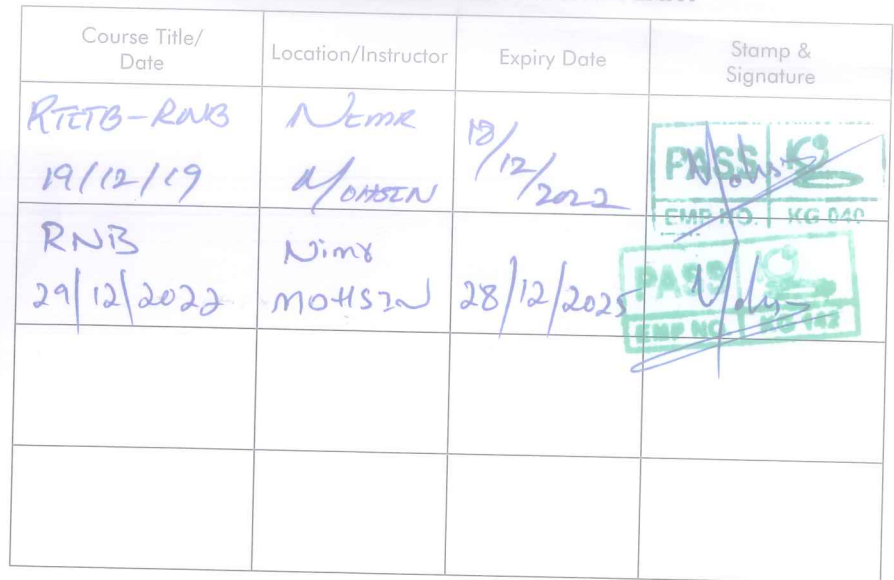 Course Title/
Date
Location/Instructor
Expiry Date
Stamp &
Signature
RTITB-RNB
19/12/19
NIMR
MOHSIN
18/12/2022
PASS
EMP NO. KG 040
RNB
29/12/2022
Nimr
MOHSIN
28/12/2025
PASS
EMP NO.